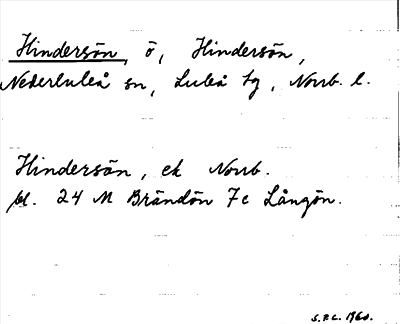 Hindersön, ö, Hindersön,
Nederluleå sn, Luleå tg, Norrb. l.
Hindersön, ek Norrb.
bl. 24 M Brändön 7c Långön.
S.F.L. 1960.